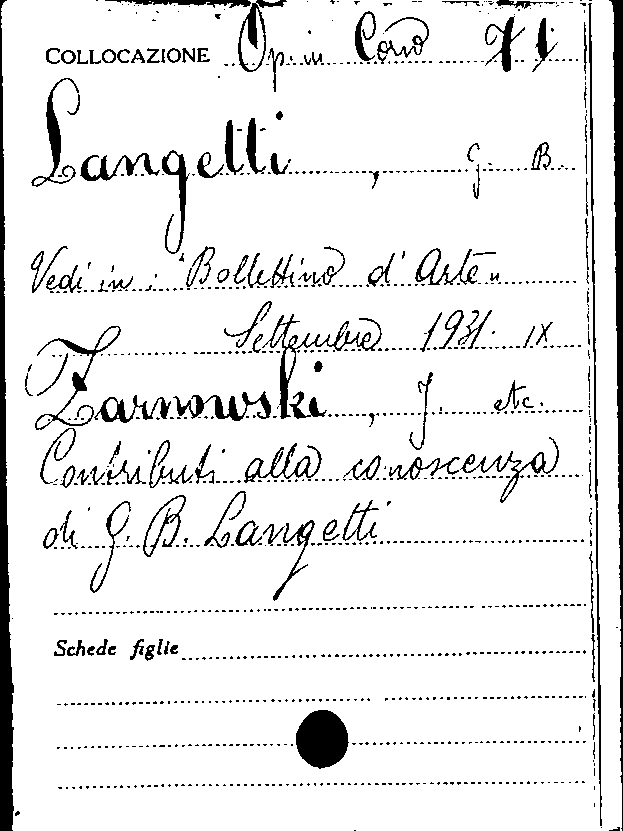 COLLOCAZIONE Op. in Corso 71
Langetti, G. B.
Vedi in: "Bollettino d'Arte"
Settembre 1931. IX
Zarnowski, J. etc.
Contributi alla conoscenza
di G. B. Langetti
Schede figlie